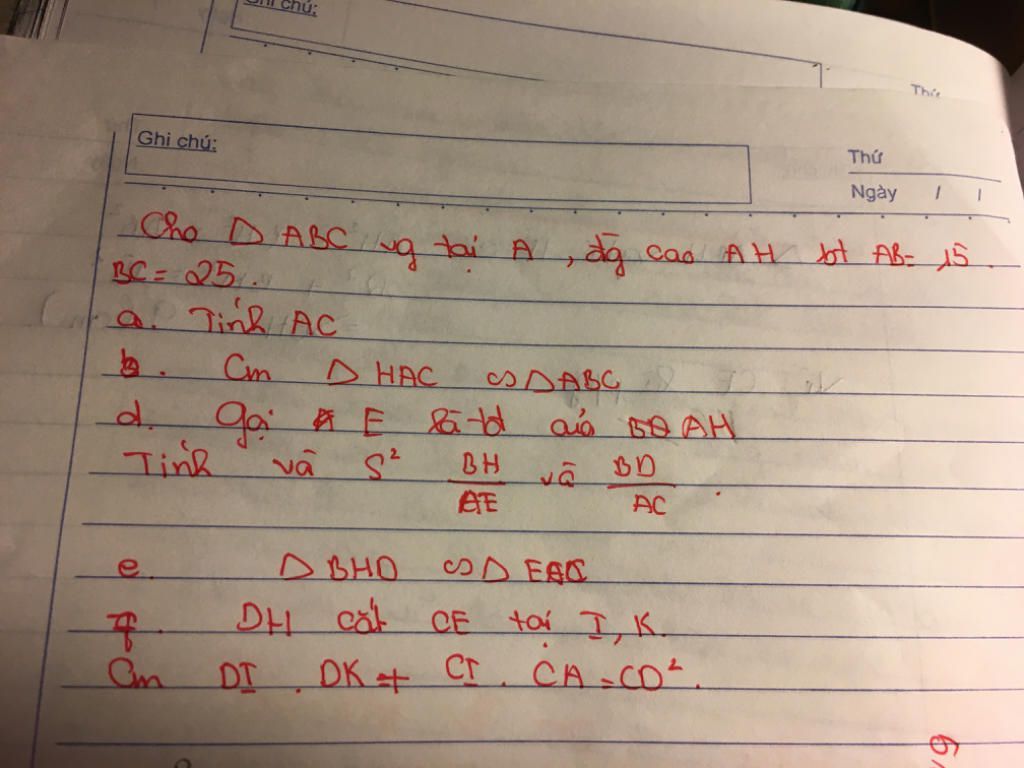 Ghi chú:
Thứ
Ghi chú:
Thứ
Ngày / /
Cho Δ ABC vg tại A, đg cao AH bt AB= 15.
BC = 25.
a. Tính AC
b. Cm Δ HAC ∽ Δ ABC
d. Gọi E là tđ của AH
Tính và S² BH/AE và BD/AC.
e. Δ BHD ∽ Δ EAC
f. DH cắt CE tại I, K.
Cm DI . DK + CI . CA = CD².